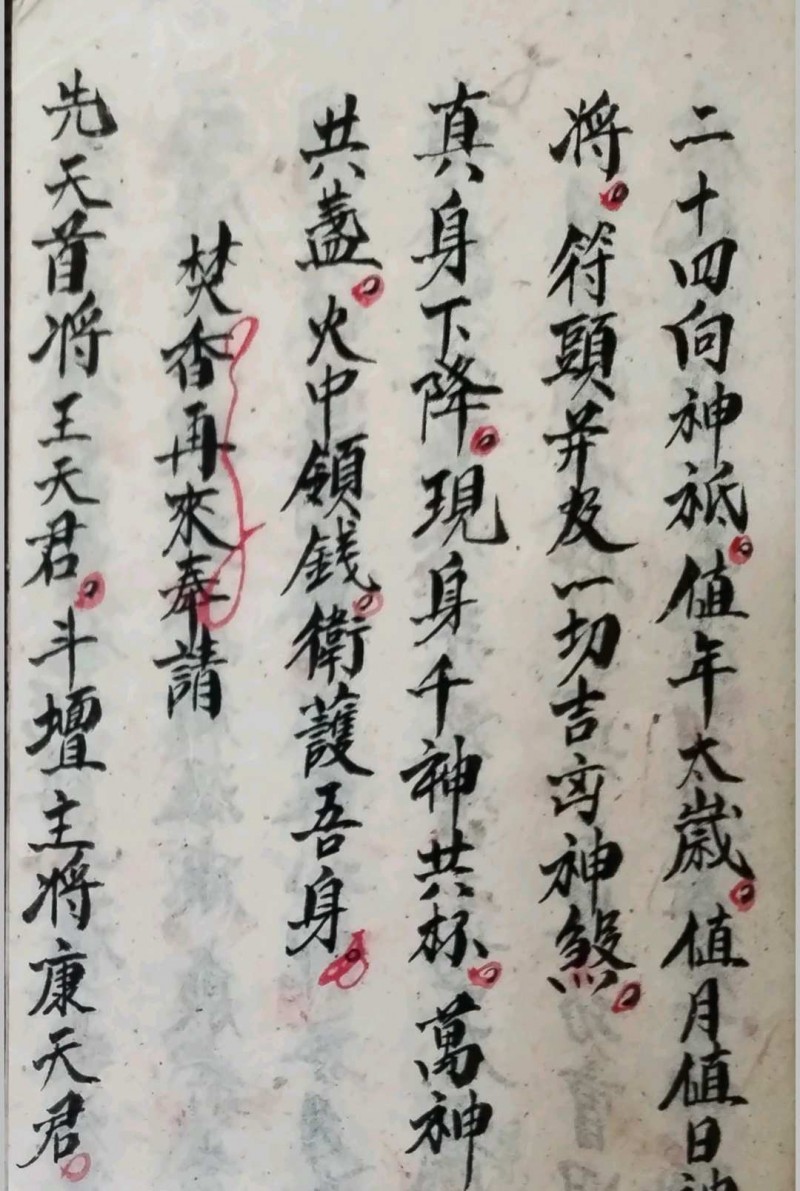 二十四向神祗。值年太歲。值月值日神
将。符頭并及一切吉凶神煞。
真身下降。現身千神共杯。萬神
共盞。火中領錢。衛護吾身。
焚香再來奉請
先天首将王天君。斗壇主将康天君。